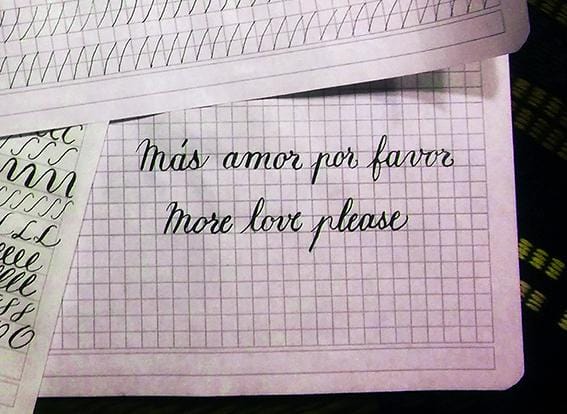 Más amor por favor
More love please